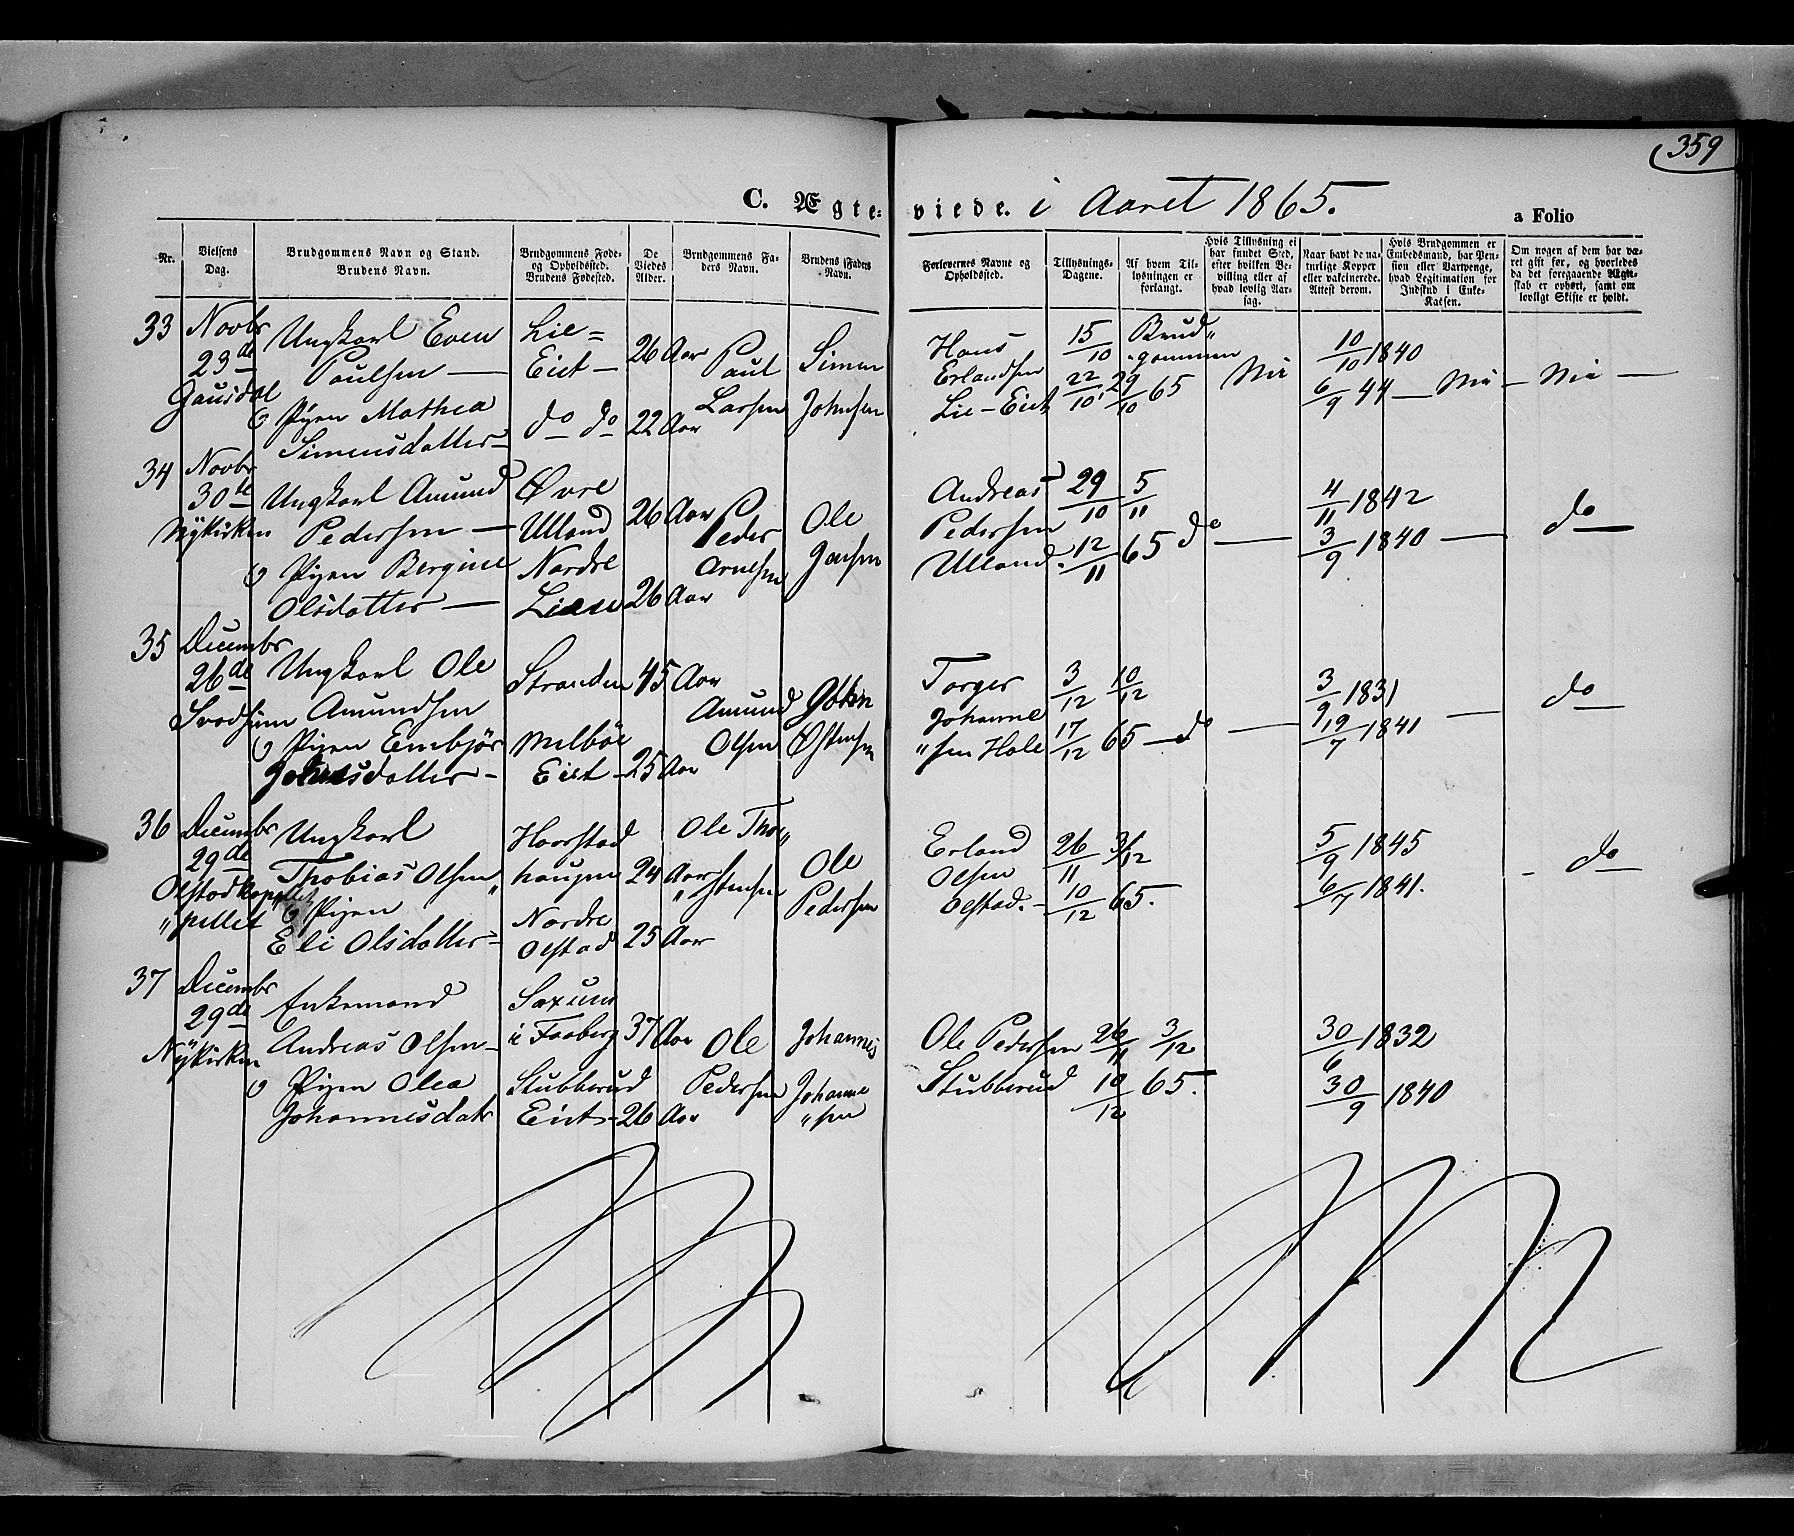 359
C. Ægte- viede. i Aaret 1865.
a Folio
Nr.
Vielsens Dag.
Brudgommens Navn og Stand.
Brudens Navn.
Brudgommens Føde- og Opholdssted.
Brudens Fødested.
De Viedes Alder.
Brudgommens Faders Navn.
Brudens Faders Navn.
Forlovernes Navne og Opholdssted.
Tillysnings-Dagene.
Af hvem Tillysningen er forlangt.
Hvis Tillysning ei har fundet Sted, efter hvilken Bevilling eller af hvad lovlig Aarsag.
Naar havt de naturlige Kopper eller vakcinerede. Attest derom.
Hvis Brudgommen er Embedsmand, har Pension eller Vartpenge, hvad Legitimation for Indskud i Enke-Kassen.
Om nogen af dem har været gift før, og hvorledes da det foregaaende Ægteskab er ophørt, samt om lovligt Skifte er holdt.
33 Novbr Ungkarl Even Lie= 26 Aar Paul Simen Hans 15/10 Brud„ 10/10 1840
23de Paulsen — Eiet — Larsen Johnsen Erlandsen 22/10, 29/10 65 „gommen Nei 6/9 44 — Nei — Nei —
Gausdal o Pigen Mathea do do 22 Aar Lie-Eiet
Simensdatter-
34 Novbr Ungkarl Amund Øvre 26 Aar Peder Ole Andreas 29/10 5/11 4/11 1842
30te Pedersen — Ulland Arnesen Jensen Pedersen 12/11 65 do — 3/9 1840 — do
Nykirken o Pigen Bergine Nordre Ulland.
Olsdatter — Lien 26 Aar
35 Decembr Ungkarl Ole Stranden 45 Aar Amund John Torger 3/12 10/12 3/9 1831
26de Amundsen Olsen Østensen Johanne 17/12 65 — do — 19/7 1841 — do
Svadsum o Pigen Embjør Melbøe „sen Hole
Johnsdatter- Eiet - 25 Aar
36 Decembr Ungkarl Haarstad Ole Thor„ Erland 26/11 3/12 5/9 1845
29de Thobias Olsen haugen 24 Aar „stensen Ole Olsen 10/12 65. 6/7 1841. - do
Olstadkapellet o Pigen Nordre Pedersen Olstad. -
„pellet Eli Olsdatter- Olstad 25 Aar
37 Decembr Enkemand Saxum
29de Andreas Olsen- i Faaberg 37 Aar Ole Johannes Ole Pedersen 26/11 3/12 30/6 1832
Nykirken o Pigen Olea Stubberud Pedersen Johanne Stubberud 10/12 65. 30/9 1840
Johannesdatr Eiet - 26 Aar „sen